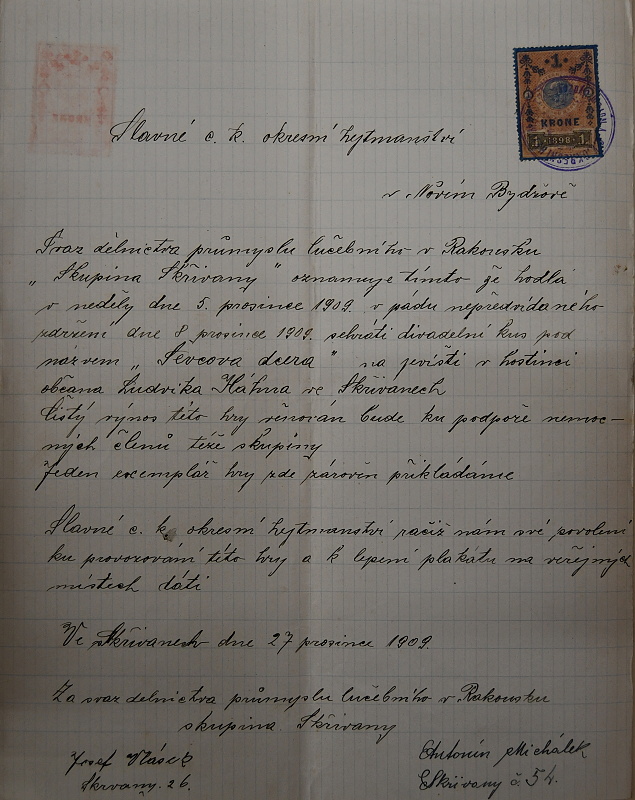 1
KRONE
1 1898 1
Slavné c. k. okresní hejtmanství
v Novém Bydžově
Svaz dělnictva průmyslu lučebního v Rakousku
„Skupina Skřivany" oznamuje tímto že hodlá
v neděly dne 5. prosince 1909. v pádu nepředvídaného
zdržení dne 8 prosince 1909. sehráti divadelní kus pod
názvem „Ševcova dcera" na jevišti v hostinci
občana Ludvika Háhna ve Skřivanech
Čistý výnos této hry věnován bude ku podpoře nemoc-
ných členů téže skupiny
Jeden exemplář hry zde zároveň přikládáme
Slavné c. k. okresní hejtmanství račiž nám své povolení
ku provozování této hry a k lepení plakatu na veřejných
místech dáti
Ve Skřivanech dne 27 prosince 1909.
Za svaz delnictva průmyslu lučebního v Rakousku
skupina Skřivany
Josef Vlásek
Skrvany. 26.
Antonín Michálek
Skřivany č. 54.